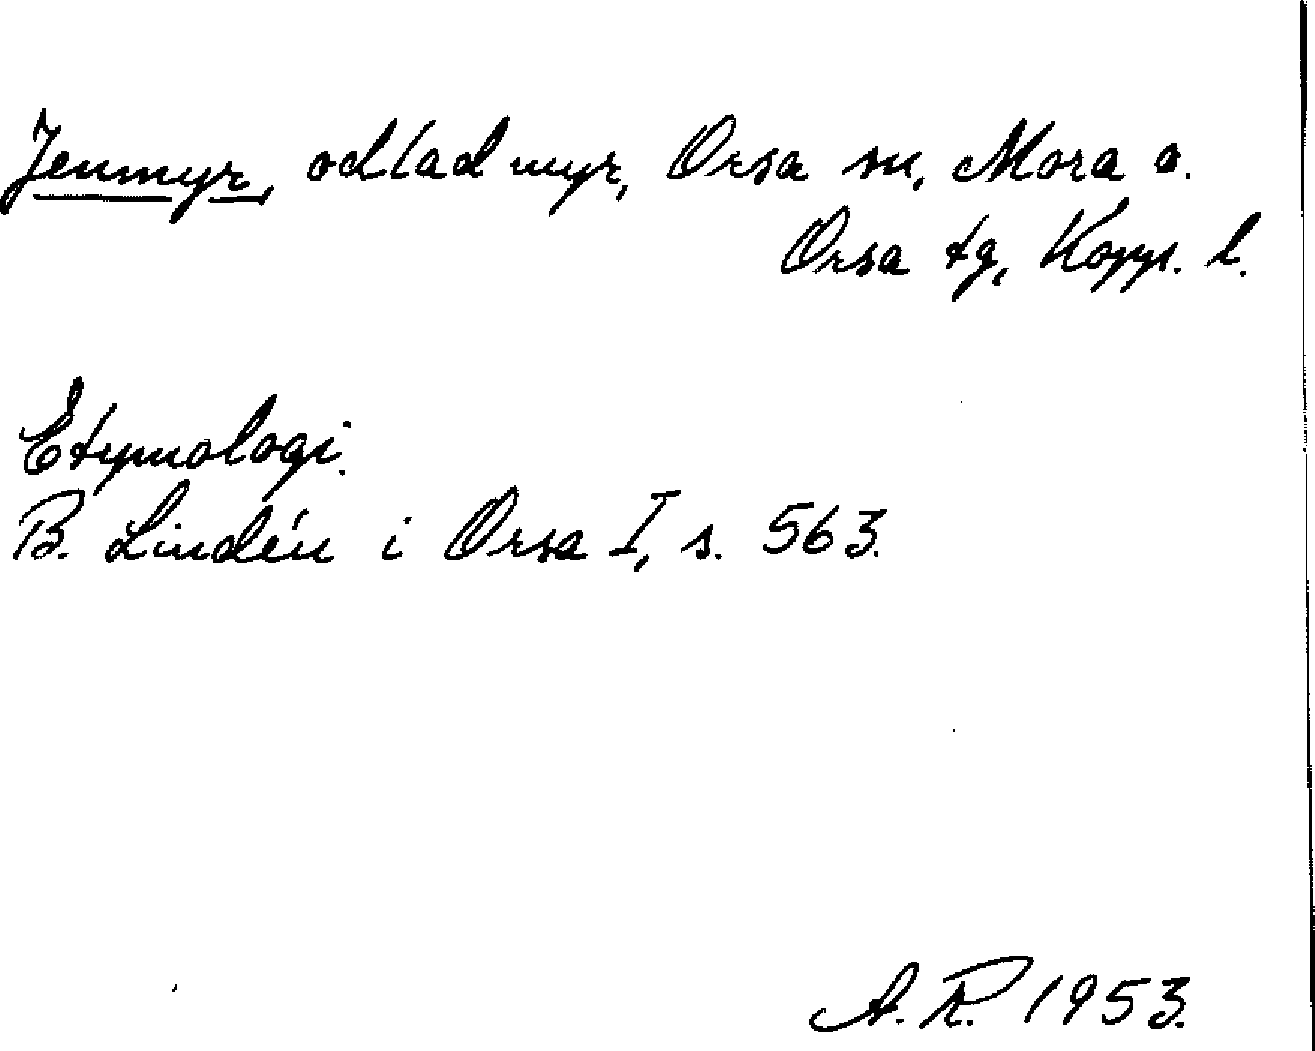 Jenmyr, odlad myr, Orsa sn, Mora o.
Orsa tg, Kopp. l.
Etymologi.
B. Lindén i Orsa I, s. 563.
A. R. 1953.